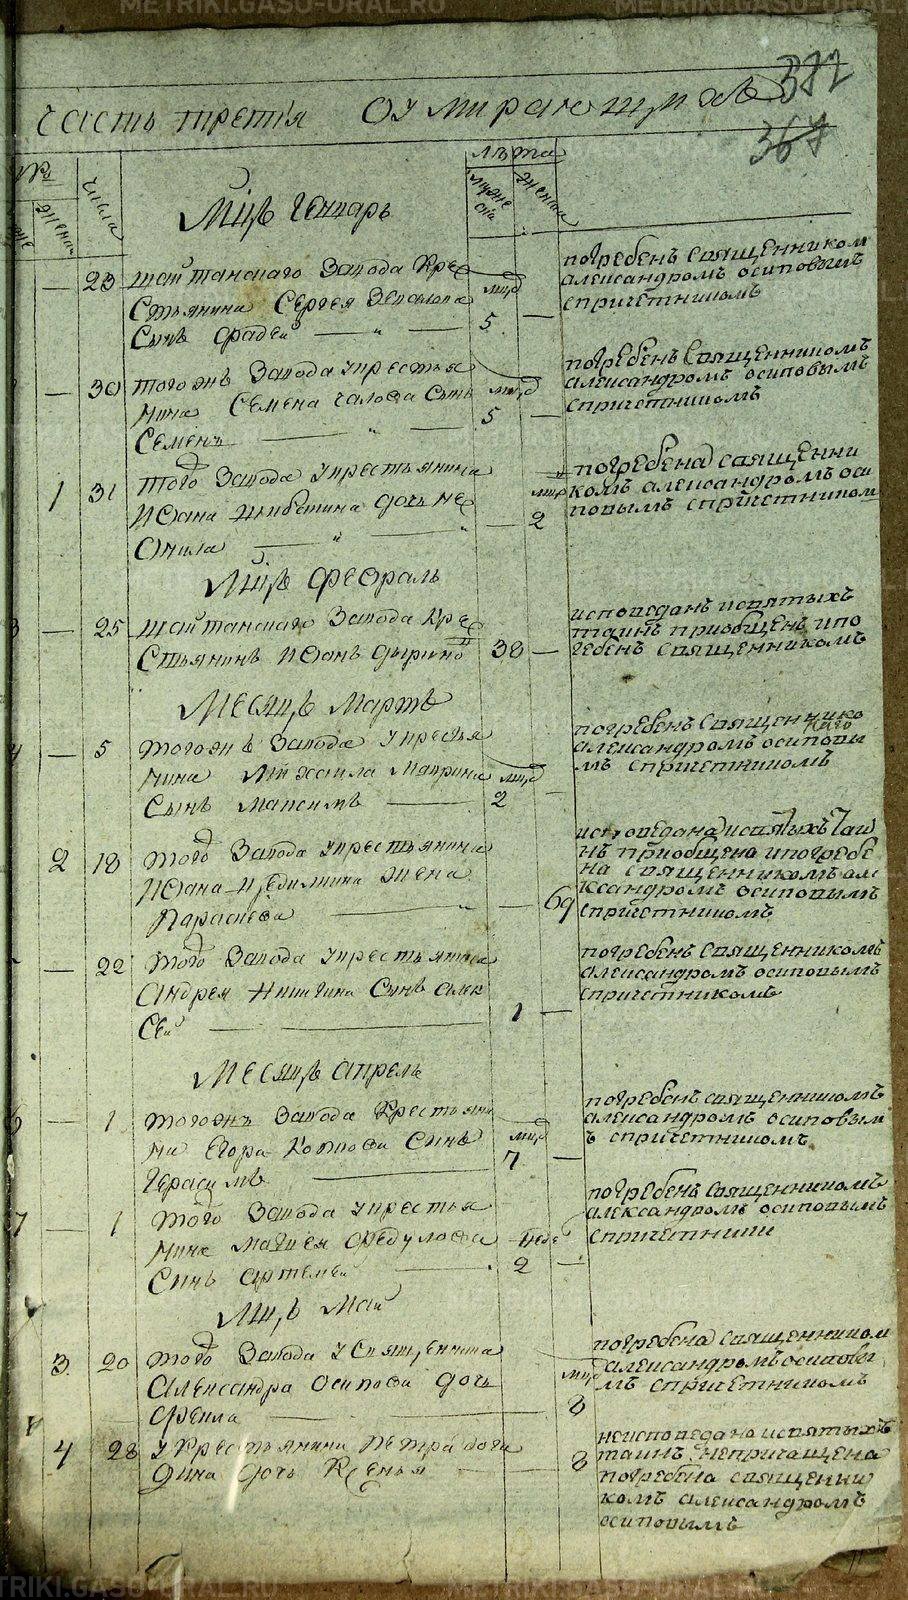 METRIKI.GASO-URAL.RU
METRIKI.GASO-URAL.RU
387
367
часть третія О умирающихъ
№
женска
числа
лѣта
мужеска
женска
Мцъ Генварь
23 шайтанскаго Завода Кре
стьянина Сергея
сынъ фадей
мцд
5
погребенъ священником
александромъ осиповымъ
спричетникомъ
30 тогожъ Завода укрестья
нина Семена сынъ
Семенъ
мцд
5
погребенъ священникомъ
александромъ осиповымъ
спричетникомъ
1 31 того Завода укрестьянина
Иоана дочь Не
онила
мцд
2
погребена священни
комъ александромъ оси
повымъ спричетником
Мцъ февраль
25 шайтанскаго Завода Кре
стьянинъ Иоанъ
38
исповеданъ исвятыхъ
таинъ приобщенъ ипо
гребенъ священникомъ
Месяцъ Мартъ
5 тогожъ Завода укрестья
нина Михаила Маврина
сынъ Максимъ
мцд
2
погребенъ священнико
александромъ осиповы
мъ спричетникомъ
2 18 того Завода укрестьянина
Иоана жена
Параскева
69
исповедана исвятыхъ Таи
нъ приобщена ипогребе
на священникомъ але
ксандромъ осиповымъ
спричетникомъ
22 того Завода укрестьянина
Андрея Никитина Сынъ алек
сей
1
погребенъ священникомъ
александромъ осиповымъ
спричетникомъ
Месяцъ апрель
6 1 тогожъ Завода Крестьяни
на Егора Сынъ
Герасимъ
мцд
7
погребенъ священникомъ
александромъ осиповым
ъ спричетникомъ
7 1 того Завода укрестья
нина Матвея Федулова
Сынъ артемей
неде
2
погребенъ священникомъ
александромъ осиповымъ
спричетники
Мцъ Май
3 20 того Завода у Священика
Александра Осипова дочь
мцд
8
погребена священником
александромъ осиповы
мъ спричетникомъ
4 28 у Крестьянина Петра
дина дочь Ксенья
8
неисповедана исвятыхъ
таинъ непричащена
погребена священни
комъ александромъ
осиповымъ
METRIKI.GASO-URAL.RU
METRIKI.GASO-URAL.RU